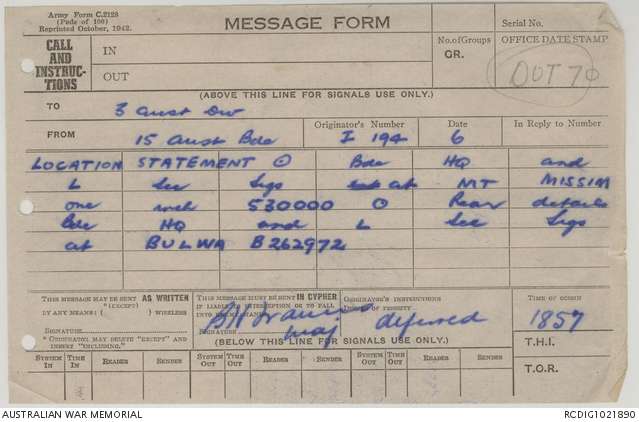 Army Form C.2128
(Pads of 100)
Reprinted October, 1942.
MESSAGE FORM
Serial No.
CALL
AND
INSTRUC-
TIONS
IN
OUT
No. of Groups
GR.
OFFICE DATE STAMP
OUT 70
(ABOVE THIS LINE FOR SIGNALS USE ONLY.)
TO 3 Aust Div
FROM 15 Aust Bde Originator's Number I 194 Date 6 In Reply to Number
LOCATION STATEMENT ⊙ Bde HQ and
L Sec Sigs at MT MISSIM
one inch 530000 ⊙ Rear details
Bde HQ and L Sec Sigs
at BULWA B262972
THIS MESSAGE MAY BE SENT AS WRITTEN
*(EXCEPT)
BY ANY MEANS: ( ) WIRELESS
SIGNATURE
* ORIGINATOR MAY DELETE "EXCEPT" AND
INSERT "INCLUDING."
THIS MESSAGE MUST BE SENT IN CYPHER
IF LIABLE TO INTERCEPTION OR TO FALL
INTO ENEMY HANDS.
SIGNATURE
Maj
ORIGINATOR'S INSTRUCTIONS
DEGREE OF PRIORITY
deferred
TIME OF ORIGIN
1857
T.H.I.
T.O.R.
(BELOW THIS LINE FOR SIGNALS USE ONLY.)
SYSTEM IN TIME IN READER SENDER SYSTEM OUT TIME OUT READER SENDER SYSTEM OUT TIME OUT READER SENDER
AUSTRALIAN WAR MEMORIAL
RCDIG1021890